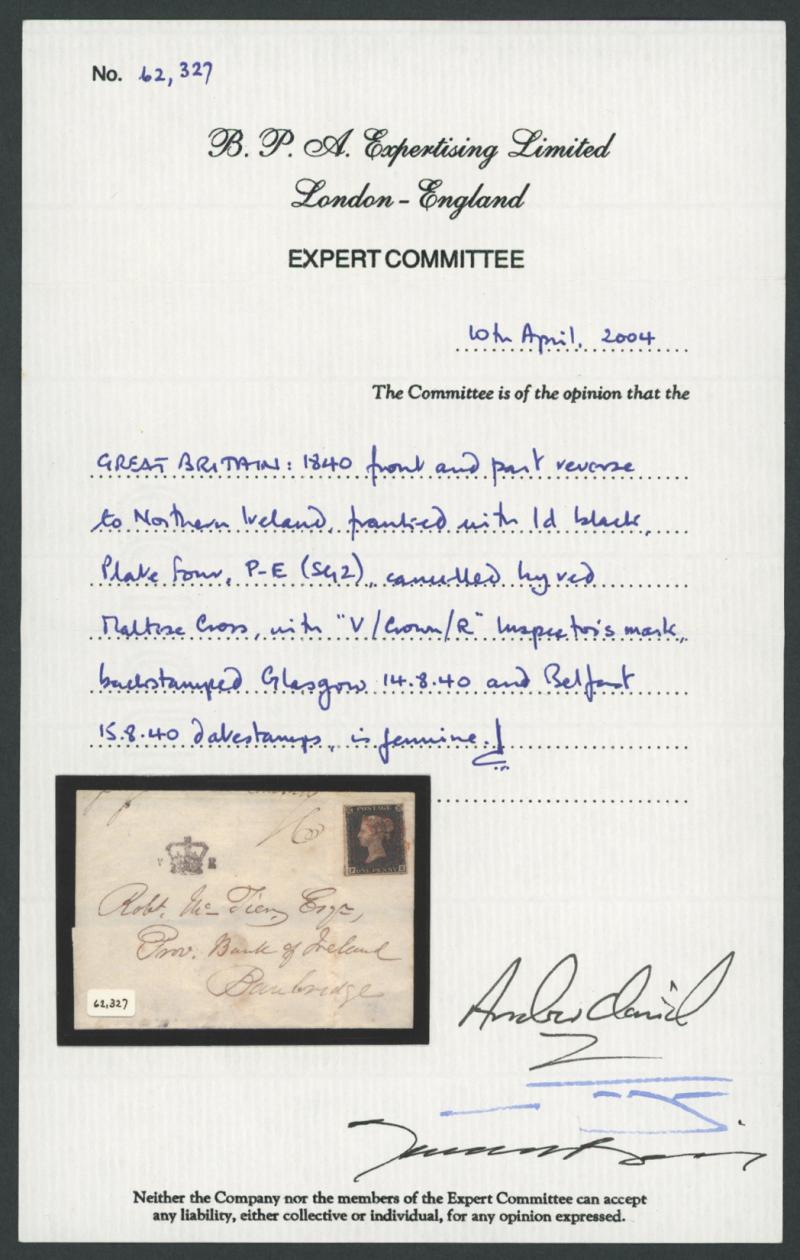 No. 62,327
B. P. A. Expertising Limited
London - England
EXPERT COMMITTEE
10th April, 2004
The Committee is of the opinion that the
GREAT BRITAIN: 1840 front and part reverse
to Northern Ireland, franked with 1d black,
Plate four, P-E (SG2), cancelled by red
Maltese Cross, with "V/Crown/R" Inspector's mark,
backstamped Glasgow 14.8.40 and Belfast
15.8.40 datestamps, is genuine.
POSTAGE
V R
P ONE PENNY E
Robt. Mc Tier Esqre,
Prov. Bank of Ireland
Banbridge
62,327
Neither the Company nor the members of the Expert Committee can accept
any liability, either collective or individual, for any opinion expressed.